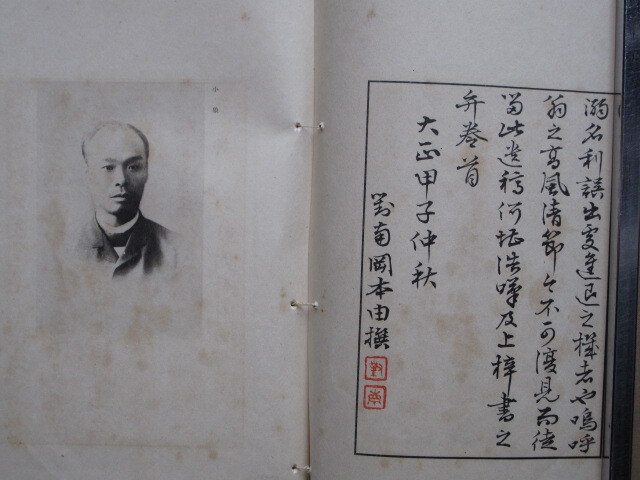 溺名利誤出處進退之機者也嗚呼
翁之高風清節今不可復見而徒
留此遺稿何堪浩嘆及上梓書之
弁卷首
大正甲子仲秋
對南岡本由撰
對
南
小像